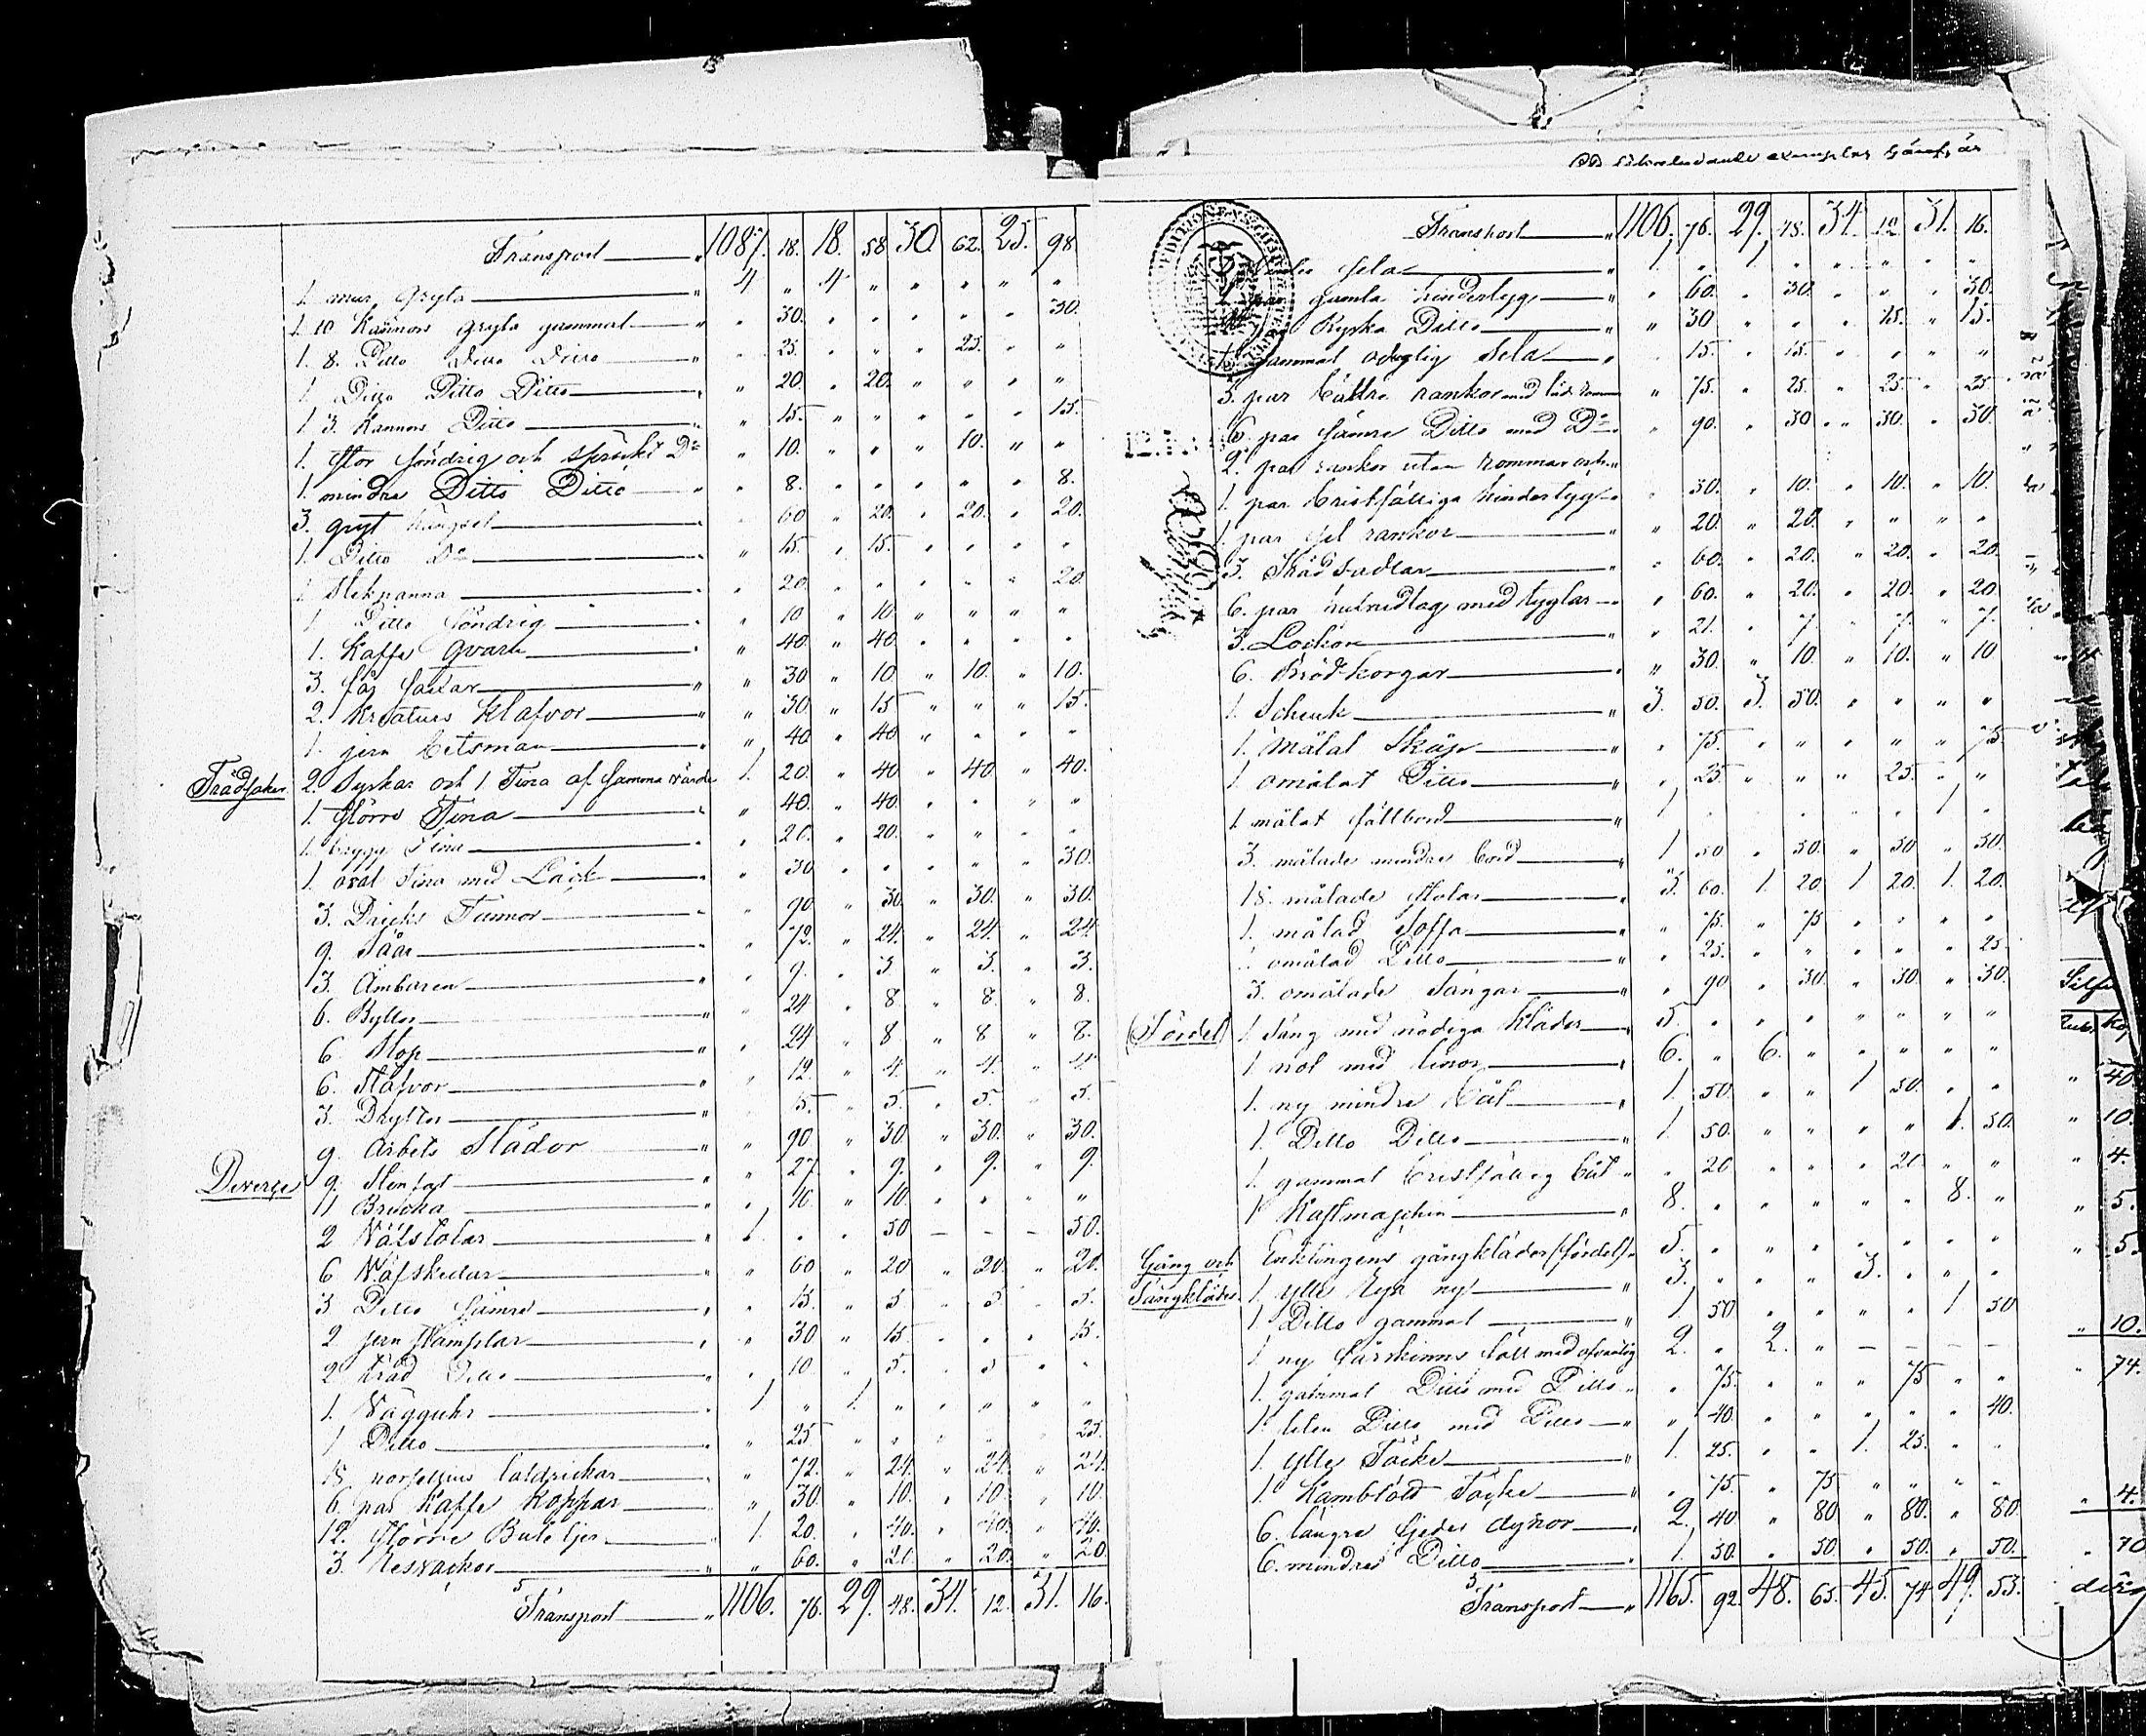 Transport " 1087. 18. 18. 58 30. 62. 25. 98
1. mur Gryta " 4 " 4 " " " " "
1. 10 Kannors Gryta gammal " " 30. " " " " " 30.
1. 8. Ditto Ditto Ditto " " 25. " " " 25. " "
1. Ditto Ditto Ditto " " 20. " 20. " " " "
1. 3. Kannors Ditto " " 15. " " " " " 15.
1. Stor söndrig och spräckt Do " " 10. " " " 10. " "
1. mindre Ditto Ditto " " 8. " " " " " 8.
3. gryt hängsel " " 60 " 20. " 20. " 20.
1. Ditto Do " " 15. " 15. " " " "
1. Stekpanna " " 20. " " " " " 20.
1 Ditto söndrig " " 10 " 10. " " " "
1. Kaffe Qvarn " " 40. " 40. " " " "
3. får saxar " " 30 " 10. " 10. " 10.
2. Kreaturs Klafvor " " 30. " 15 " " " 15.
1. jern betsman " " 40 " 40 " " " "
Trädsaker 2. Byrkar och 1 Tina af samma värde 1. 20. " 40. " 40. " 40.
1. större Tina " " 40. " 40. " " " "
1. brygg Tina " " 20. " 20. " " " "
1. oval Tina med Låck " " 30 " " " " " 30.
3. Dricks Tunnor " " 90 " 30. " 30. " 30.
9. Såår " " 72. " 24. " 24. " 24.
3. Ämbaren " " 9. " 3 " 3. " 3.
6. Byttor " " 24 " 8 " 8. " 8.
6. Stop " " 24 " 8 " 8 " 8.
6. Stäfvor " " 12. " 4. " 4. " 4.
3. Dryftor " 5. " 5. " 5. " 5.
9. Arbets Slädor " " 90 " 30 " 30. " 30.
Diverse 9. Stenfat " " 27. " 9. " 9. " 9.
1 Bricka " " 10. " 10. " " " "
2 Väfstolar " 1. " " 50 - - - 50.
6 Väfskedar " " 60 " 20 " 20. " 20.
3 Ditto sämre " " 15. " 5 " 5. " 5.
2 jern stämplar " " 30 " 15. " " " 15.
2 träd Ditto " " 10 " 5. " 5 " "
1. Vägguhr " 1 " 1. " " " " "
1 Ditto " " 25 " " " " " 25.
15 porsellins taldrickar " " 72. " 24. " 24. " 24.
6. par Kaffe Koppar " " 30. " 10. " 10. " 10.
12. Större Buteljer " 1. 20. " 40. " 40. " 40.
3. Resväskor " " 60. " 20. " 20. " 20
Transport " 1106. 76. 29. 48. 34. 12. 31. 16.
Transport " 1106. 76. 29. 48. 34. 12. 31. 16.
Sela " 1. " 1. " " " " "
par gamla hindertyg " " 60. " 30. " " " 30.
par Ryska Ditto " " 30 " " " 15. " 15.
1. gammal oduglig Sela " " 15. " 15. " " " "
3. par bättre rankor " 75. " 25. " 25. " 25.
6. par sämre Ditto med Do " 90. " 30 " 30. " 30.
2. par rankor utan rommar och "
1. par bristfälliga hindertyg " 30. " 10. " 10. " 10.
1 par fel rankor " 20. " 20. " " " "
3. Träd Sadlar " 60. " 20. " 20. " 20.
6. par hufvudlag med tyglar " 60. " 20. " 20. " 20
3. Lockor " 21. " 7. " 7. " 7.
6. Brödkorgar " 30. " 10. " 10. " 10
1. Schenk " 3. 50. 3. 50. " " " "
1. Målat Skåp " 75. " " " " " 75
1 omålat Ditto " 25 " " " 25. " "
1. målat fällbord " 1 " " " " " 1 "
3. målade mindre bord " 1 50 " 50. " 50 " 50.
18. målade Stolar " 3. 60. 1. 20. 1 20. 1. 20.
1. målad Soffa " " 75. " 75 " " " "
1. omålad Ditto " " 25. " " " " " 25.
3. omålade Sängar " " 90 " 30. " 30. " 30.
(Fördel) 1 Säng med nödiga kläder " 5. " " " " " " "
1 not med linor " 6. " 6. " " " " "
1. ny mindre Båt " 1. 50. " " 1 50. " "
1. Ditto Ditto " 1. 50. " " " " 1. 50.
1. gammal bristfällig båt " " 20 " " " 20. " "
1 Kastmaschin " 8. " " " " " 8. "
Gång och Enklingens gångkläder (fördel) " 5. " " " " " " "
Sängkläder. 1. ylle Rya ny " 3. " " " 3. " " "
1. Ditto gammal " 1 50 " " " " 1 50
1. ny fårskinns fäll med " 2. " 2. " - - - -
1. gammal Ditto med Ditto " " 75. " " " 75 " "
1. liten Ditto med Ditto " " 40. " " " " " 40.
1. ylle Täcke " 1. 25. " " 1. 25. " "
1. Kamblåtd Täcke " " 75. " 75 " " " "
6. längre fjeder dynor " 2. 40 " 80 " 80. " 80.
6. mindre Ditto " 1. 50. " 50. " 50. " 50.
Transport " 1165. 92. 48. 65. 45. 74. 49. 53.